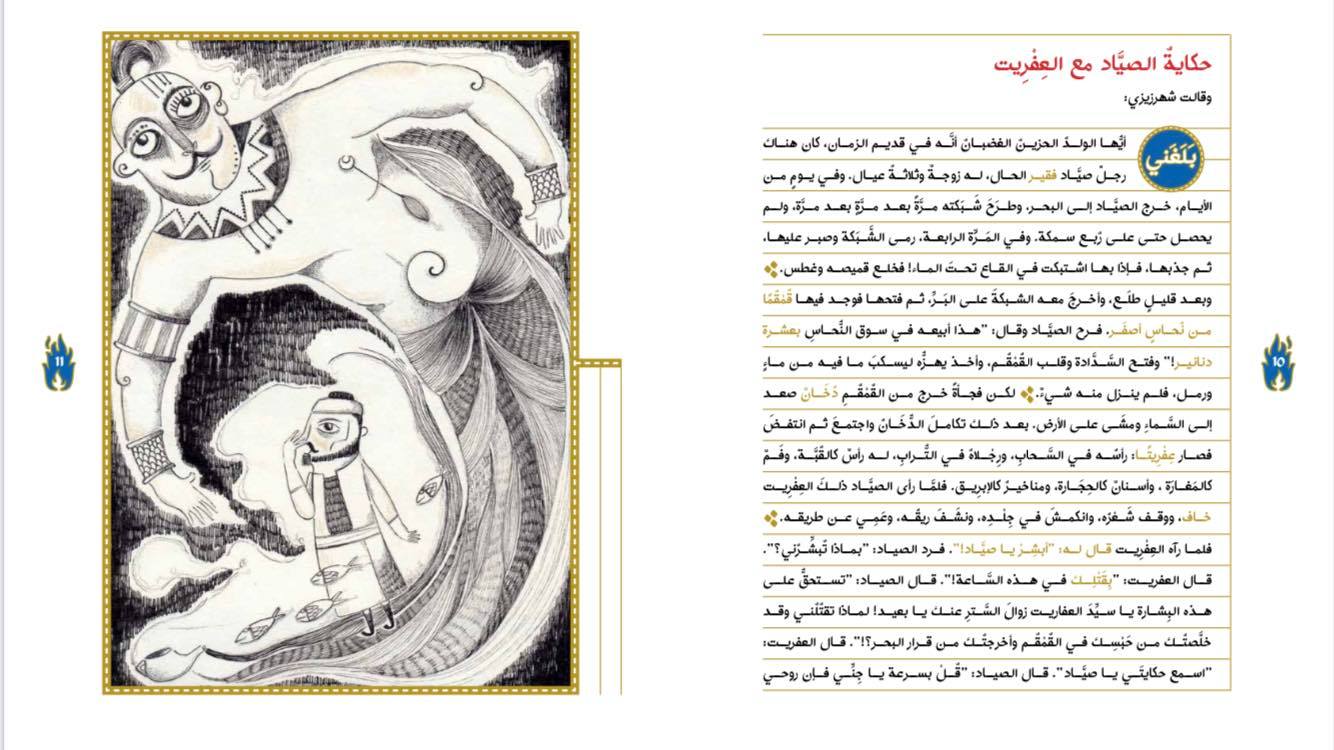 حكايةُ الصيَّاد مع العِفْرِيت
وقالت شهرزيزي:
بَلَغَني
أيُّها الولدُ الحزينُ الغضبانُ أنَّه في قديم الزمان، كان هناك
رجلٌ صيَّاد فقير الحال، له زوجةٌ وثلاثةُ عيال. وفي يومٍ من
الأيام، خرج الصيَّاد إلى البحر، وطرَحَ شَبَكته مرَّةً بعد مرَّةٍ بعد مرَّة، ولم
يحصل حتى على رُبع سمكة. وفي المَرَّة الرابعة، رمى الشَّبَكة وصبر عليها،
ثم جذبها، فإذا بها اشتبكت في القاع تحتَ الماء! فخلع قميصه وغطس.
وبعد قليلٍ طلَع، وأخرجَ معه الشبكةَ على البَرِّ، ثم فتحها فوجد فيها قُمْقُمًا
من نُحاسٍ أصفَر. فرح الصيَّاد وقال: "هذا أبيعه في سوق النُّحاسِ بعشرة
دنانير!" وفتح السَّدَّادة وقلب القُمْقُم، وأخذ يهزُّه ليسكبَ ما فيه من ماءٍ
ورمل، فلم ينزل منه شيءٌ. لكن فجأةً خرج من القُمْقُمِ دُخَانٌ صعد
إلى السَّماءِ ومشَى على الأرض. بعد ذلك تكاملَ الدُّخَانُ واجتمعَ ثم انتفضَ
فصار عِفْرِيتًا: رأسُه في السَّحابِ، ورِجْلاهُ في التُّرابِ، له رأسٌ كالقُبَّة، وفَمٌ
كالمَغارَة ، وأسنانٌ كالحِجَارة، ومناخيرُ كالإبريق. فلمَّا رأى الصيَّاد ذلكَ العِفْرِيت
خاف، ووقف شَعْرُه، وانكمشَ في جِلْدِه، ونشَفَ ريقُه، وعَمِي عن طريقه.
فلما رآه العِفْرِيت قال له: "أبشِرْ يا صيَّاد!". فرد الصياد: "بماذا تُبشِّرُني؟".
قال العفريت: "بِقَتْلِكَ في هذه السَّاعة!". قال الصياد: "تستحقُّ على
هذه البِشارة يا سيِّدَ العفاريت زوالَ السَّترِ عنكَ يا بعيد! لماذا تقتُلُني وقد
خلَّصتُكَ من حَبْسِكَ في القُمْقُم وأخرجتُكَ من قرار البحر؟!". قال العفريت:
"اسمع حكايتَي يا صيَّاد". قال الصياد: "قُلْ بسرعة يا جِنِّي فإن روحي
10
11